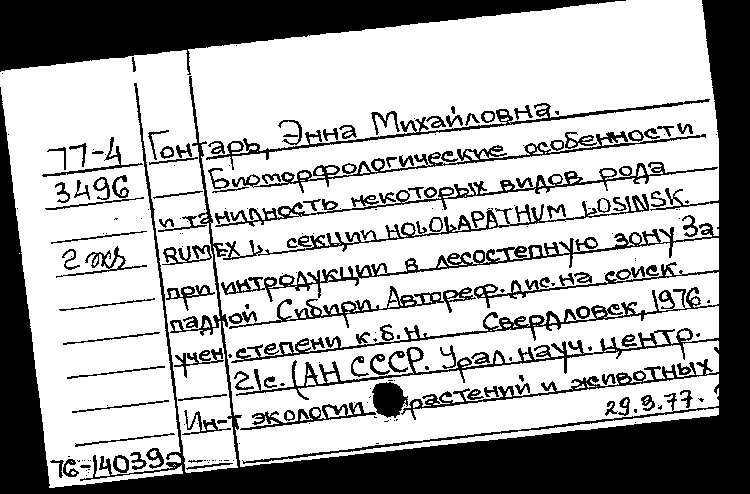 77-4 Гонтарь, Энна Михайловна.
3496 Биоморфологические особенности
и танидность некоторых видов рода
2 экз RUMEX L. секции HOLOLAPATHUM LOSINSK.
при интродукции в лесостепную зону За-
падной Сибири. Автореф. дис. на соиск.
учен. степени к.б.н. Свердловск, 1976.
21с. (АН СССР. Урал. науч. центр.
Ин-т экологии растений и животных
29.3.77.
76-14039